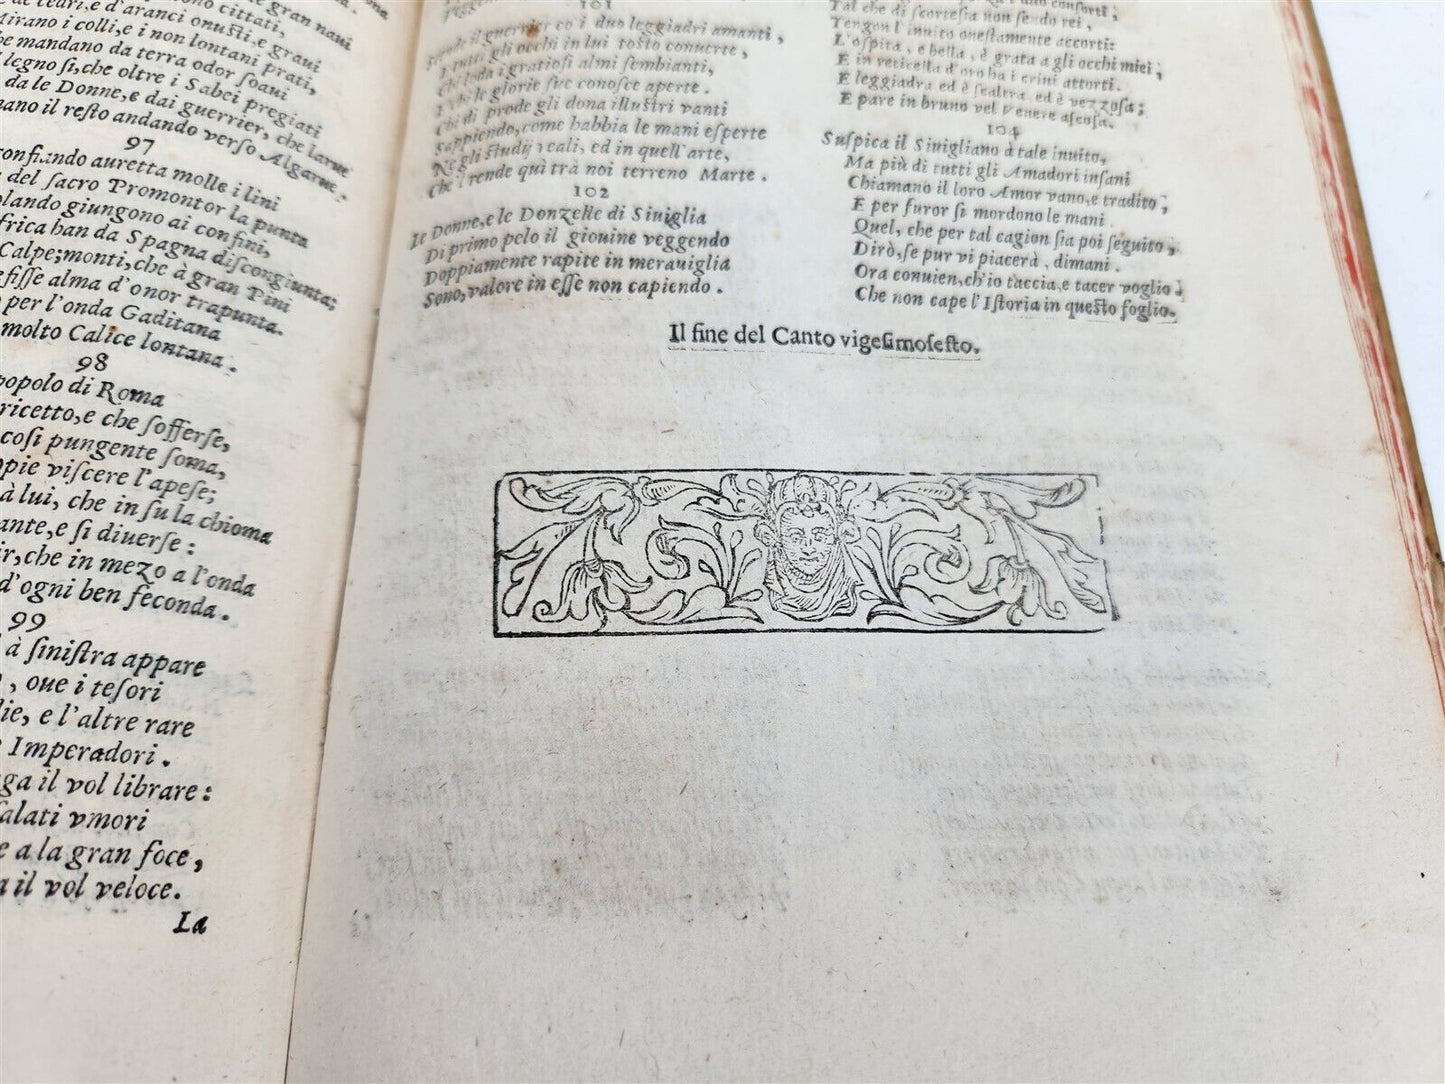 cittati,
de cedri, e d'aranci onusti, e graui
Mirano i colli, e i non lontani prati,
mandano da terra odor soaui
legno si, che oltre i Sabei pregiati
da le Donne, e dai guerrier, che larue
il resto andando verso Algarue.
97
auretta molle i lini
del sacro Promontor la punta
giungono ai confini,
han da Spagna discongiunta;
Calpe; monti, che à gran Pini
alma d'onor trapunta.
per l'onda Gaditana
molto Calice lontana.
98
popolo di Roma
ricetto, e che sofferse,
cosi pungente soma,
viscere l'apese;
à lui, che in su la chioma
e si diuerse:
che in mezo a l'onda
d'ogni ben feconda.
99
à sinistra appare
, oue i tesori
e l'altre rare
Imperadori.
il vol librare:
vmori
e a la gran foce,
il vol veloce.
La
101
il guerrier co i duo leggiadri amanti,
gli occhi in lui tosto conuerte,
Che loda i gratiosi almi sembianti,
E che le glorie sue conosce aperte.
Chi di prode gli dona illustri vanti
Sappiendo, come habbia le mani esperte
Ne gli studij reali, ed in quell'arte,
Che 'l rende quì trà noi terreno Marte.
102
Le Donne, e le Donzelle di Siuiglia
Di primo pelo il giouine veggendo
Doppiamente rapite in merauiglia
Sono, valore in esse non capiendo.
Tal che di scortesia non sendo rei,
Tengon l'inuito onestamente accorti:
L'ospita, e bella, è grata a gli occhi miei;
E in reticella d'oro ha i crini attorti.
E leggiadra ed è scaltra, ed è vezzosa;
E pare in bruno vel Venere ascosa.
104
Suspica il Siuigliano à tale inuito,
Ma più di tutti gli Amadori insani
Chiamano il loro Amor vano, e tradito;
E per furor si mordono le mani.
Quel, che per tal cagion sia poi seguito,
Dirò, se pur vi piacerà, dimani.
Ora conuien, ch'io taccia, e tacer voglio;
Che non cape l'Istoria in questo foglio.
Il fine del Canto vigesimosesto.